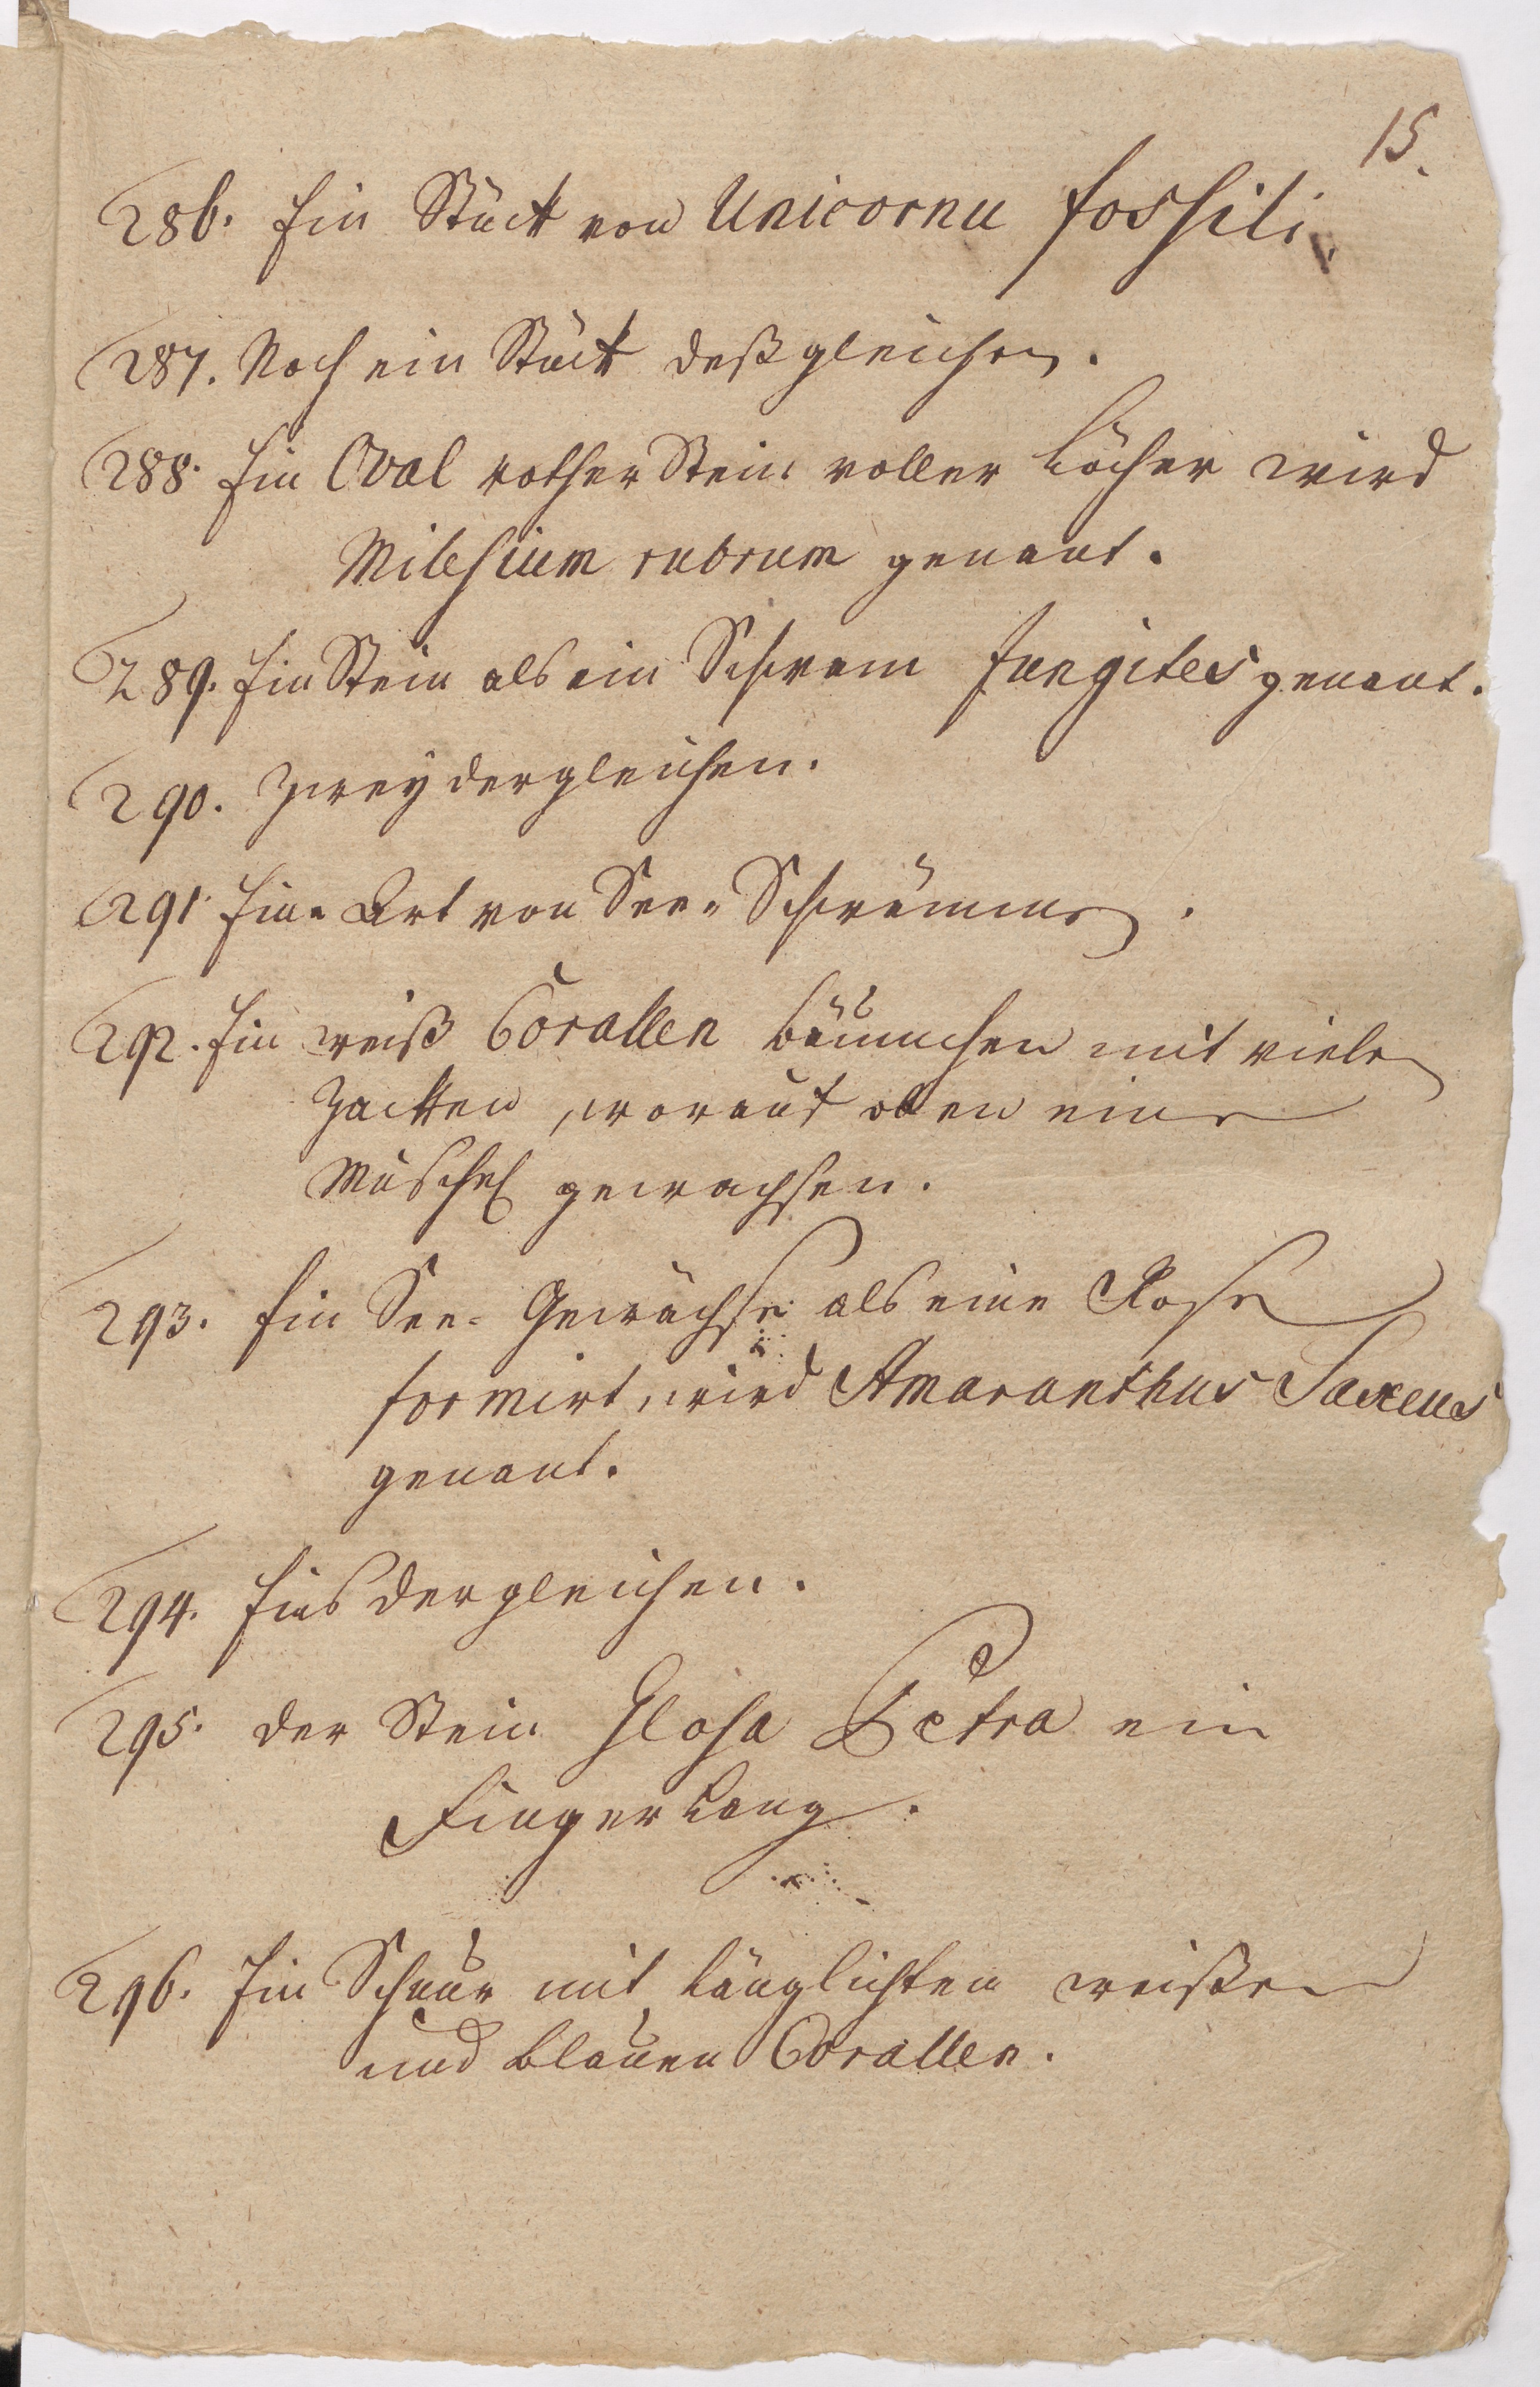 15.
286. Ein Stück von Unicornu fossili.
287. Noch ein Stück deßgleichen.
288. Ein Oval rother Stein voller Löcher wird
Milesium rubrum genant.
289. Ein Stein als ein Schwam fungites genant.
290. Zwey dergleichen.
291. Eine Art von See-Schwämmen.
292. Ein weiß Corallen bäumchen mit vielen
Zacken, worauf oben eine
Muschel gewachsen.
293. Ein See-Gewächse als eine Rose
formirt, wird Amaranthus Saxeus
genant.
294. Eins dergleichen.
295. Der Stein Glosa Petra ein
Finger lang.
296. Ein Schnur mit länglichten weißen
und blauen Corallen.